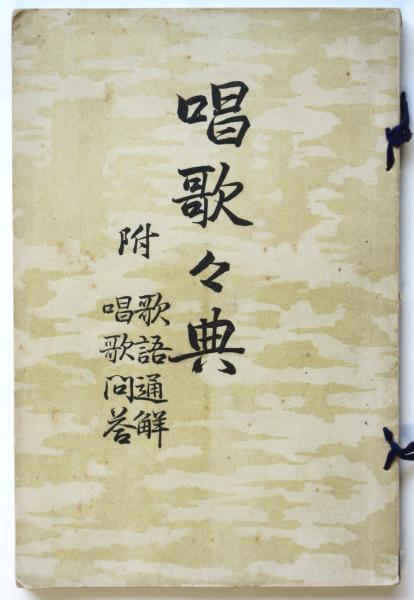 唱歌々典
附
歌語通解
唱歌問答